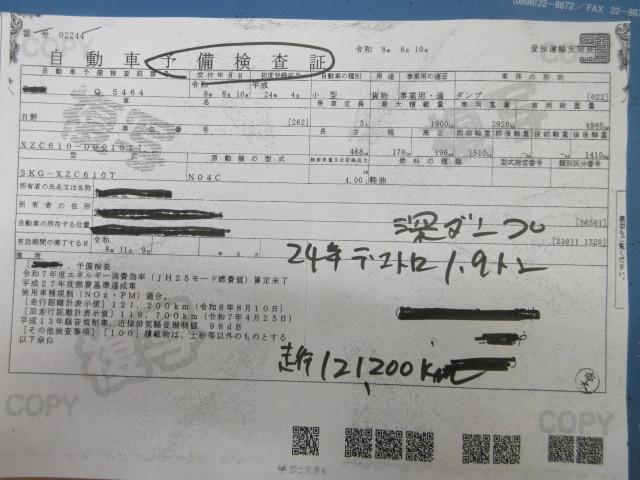 (0898)22-8672/FAX 22-8
番号 02244
令和 8年 8月10日
愛知運輸支局長
自動車予備検査証
自動車予備検査証番号 交付年月日 初度登録年月 自動車の種別 用途 事業用の適否 車体の形状
Q 5464 令和 8年 8月10日 平成 24年 4月 小型 貨物 事業用・適 ダンプ [022]
車名 乗車定員 最大積載量 車両重量 車両総重量
日野 [262] 3人 1900kg 2920kg 4985kg
車台番号 長さ 幅 高さ 前前軸重 前後軸重 後前軸重 後後軸重
XZC610-0001617 468cm 170cm 196cm 1510kg 1410kg
型式 原動機の型式 燃料の種類 型式指定番号 類別区分番号
SKG-XZC610T N04C 4.00 軽油
所有者の氏名又は名称
所有者の住所
[36561]
自動車の所在する位置
[23011 1320]
有効期間の満了する日 令和 8年11月 9日
深ダンプ
24年 デュトロ 1.9トン
備考
予備検査
令和7年度エネルギー消費効率(JH25モード燃費値)算定未了
平成27年度燃費基準達成車
使用車種規制(NOx・PM)適合
[走行距離計表示値]121,200km(令和8年8月10日)
[旧走行距離計表示値]118,700km(令和7年4月25日)
平成13年騒音規制車、近接排気騒音規制値 98dB
[その他検査事項] [100]積載物は、土砂等以外のものとする
以下余白
走行 121,200Km
複写
COPY
COPY
COPY
COPY
国土交通省